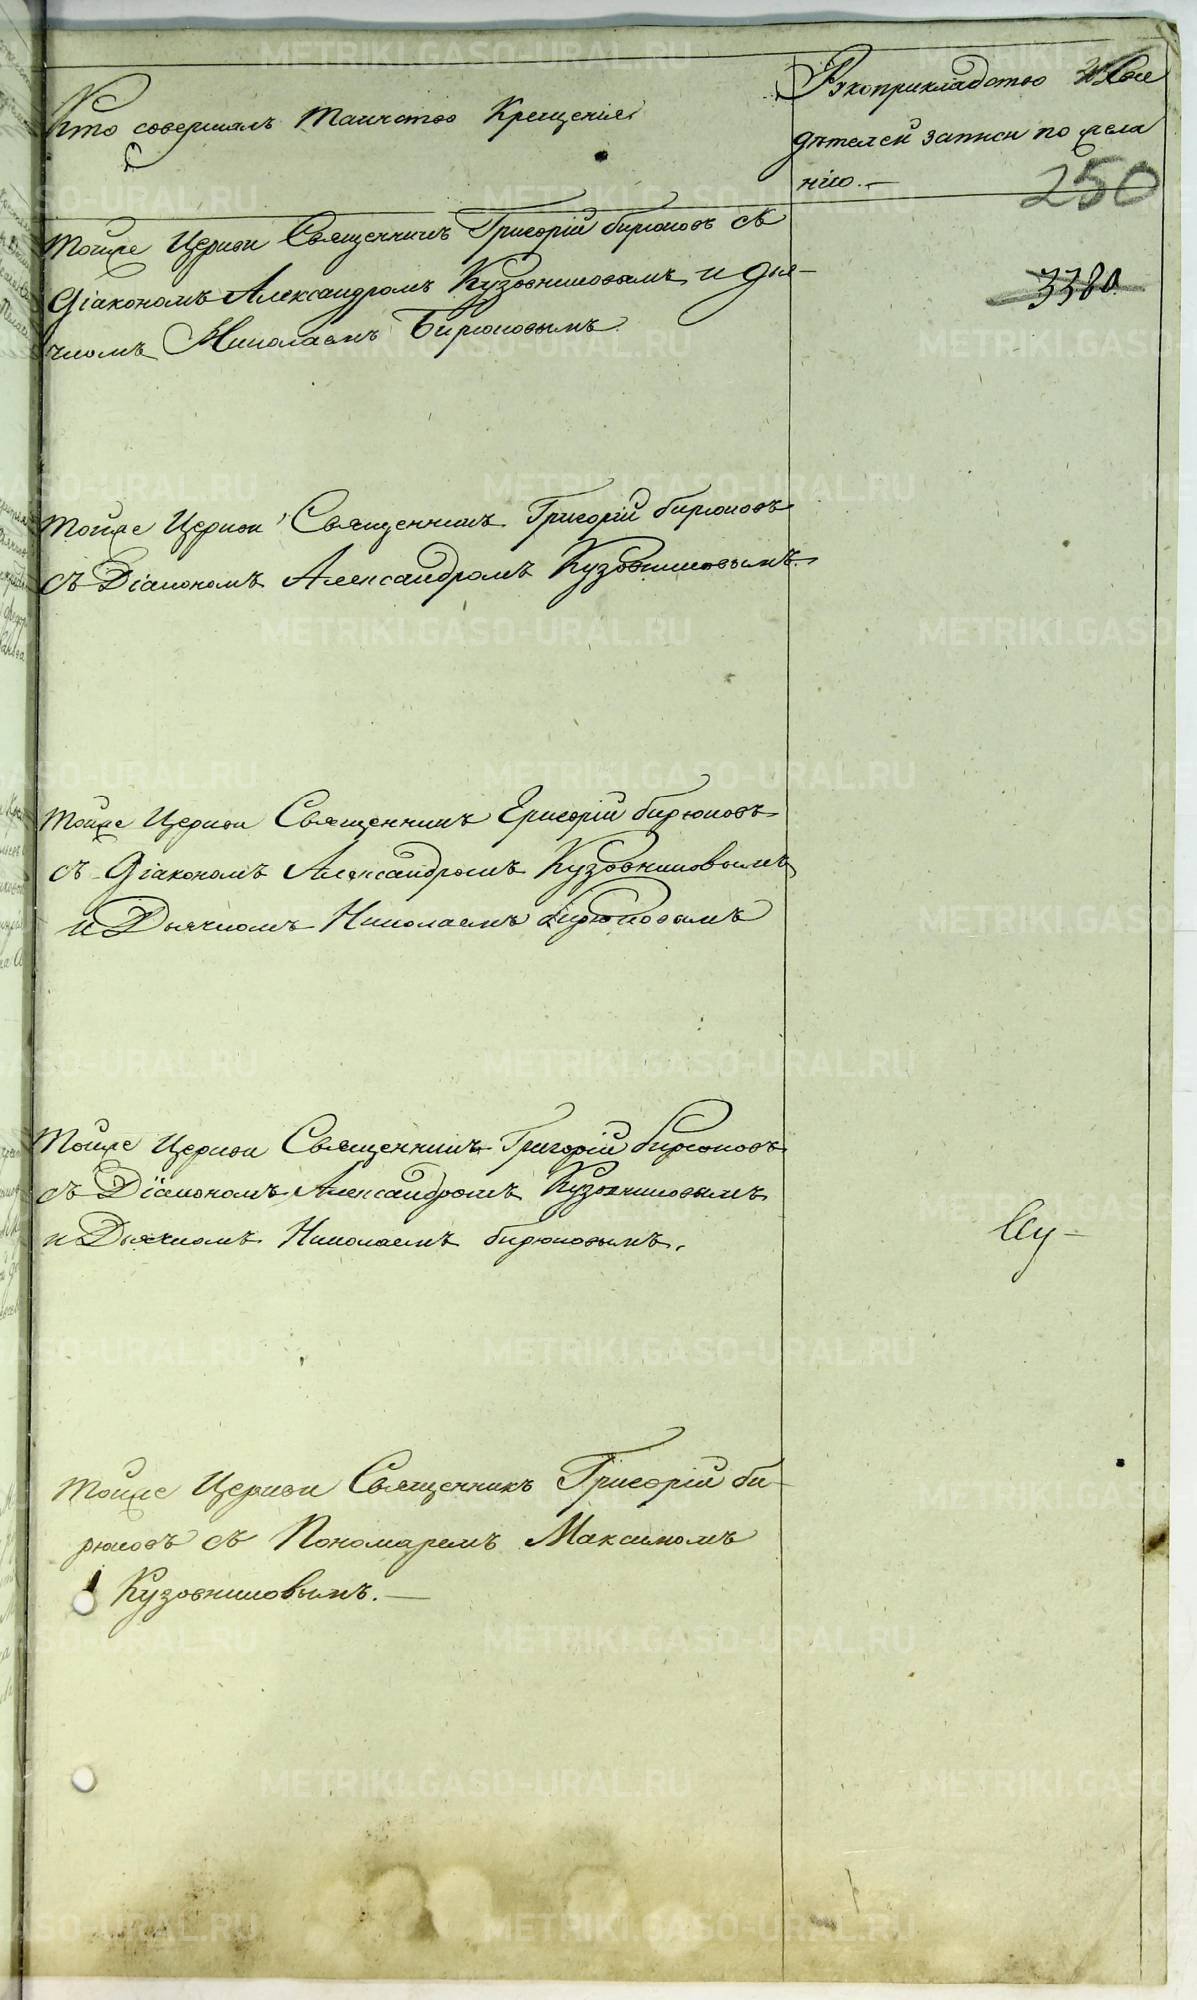 Кто совершалъ Таинство Крещенія
Рукоприкладство
дѣтелей записи по жела
нію.—
250
3380
тойже Церкви Священникъ Григорій бирюковъ съ
Діакономъ Александромъ Кузовниковымъ и дья-
чкомъ Николаемъ Бирюковымъ
тойже Церкви Священникъ Григорій бирюковъ
съ Діакономъ Александромъ Кузовниковымъ.
тойже Церкви Священникъ Григорій бирюковъ
съ Діакономъ Александромъ Кузовниковымъ
и Дьячкомъ Николаемъ Бирюковымъ
тойже Церкви Священникъ Григорій бирюковъ
съ Діакономъ Александромъ Кузовниковымъ
и Дьячкомъ Николаемъ бирюковымъ.
тойже Церкви Священникъ Григорій би-
рюковъ съ Пономаремъ Максимомъ
Кузовниковымъ.—
METRIKI.GASO-URAL.RU